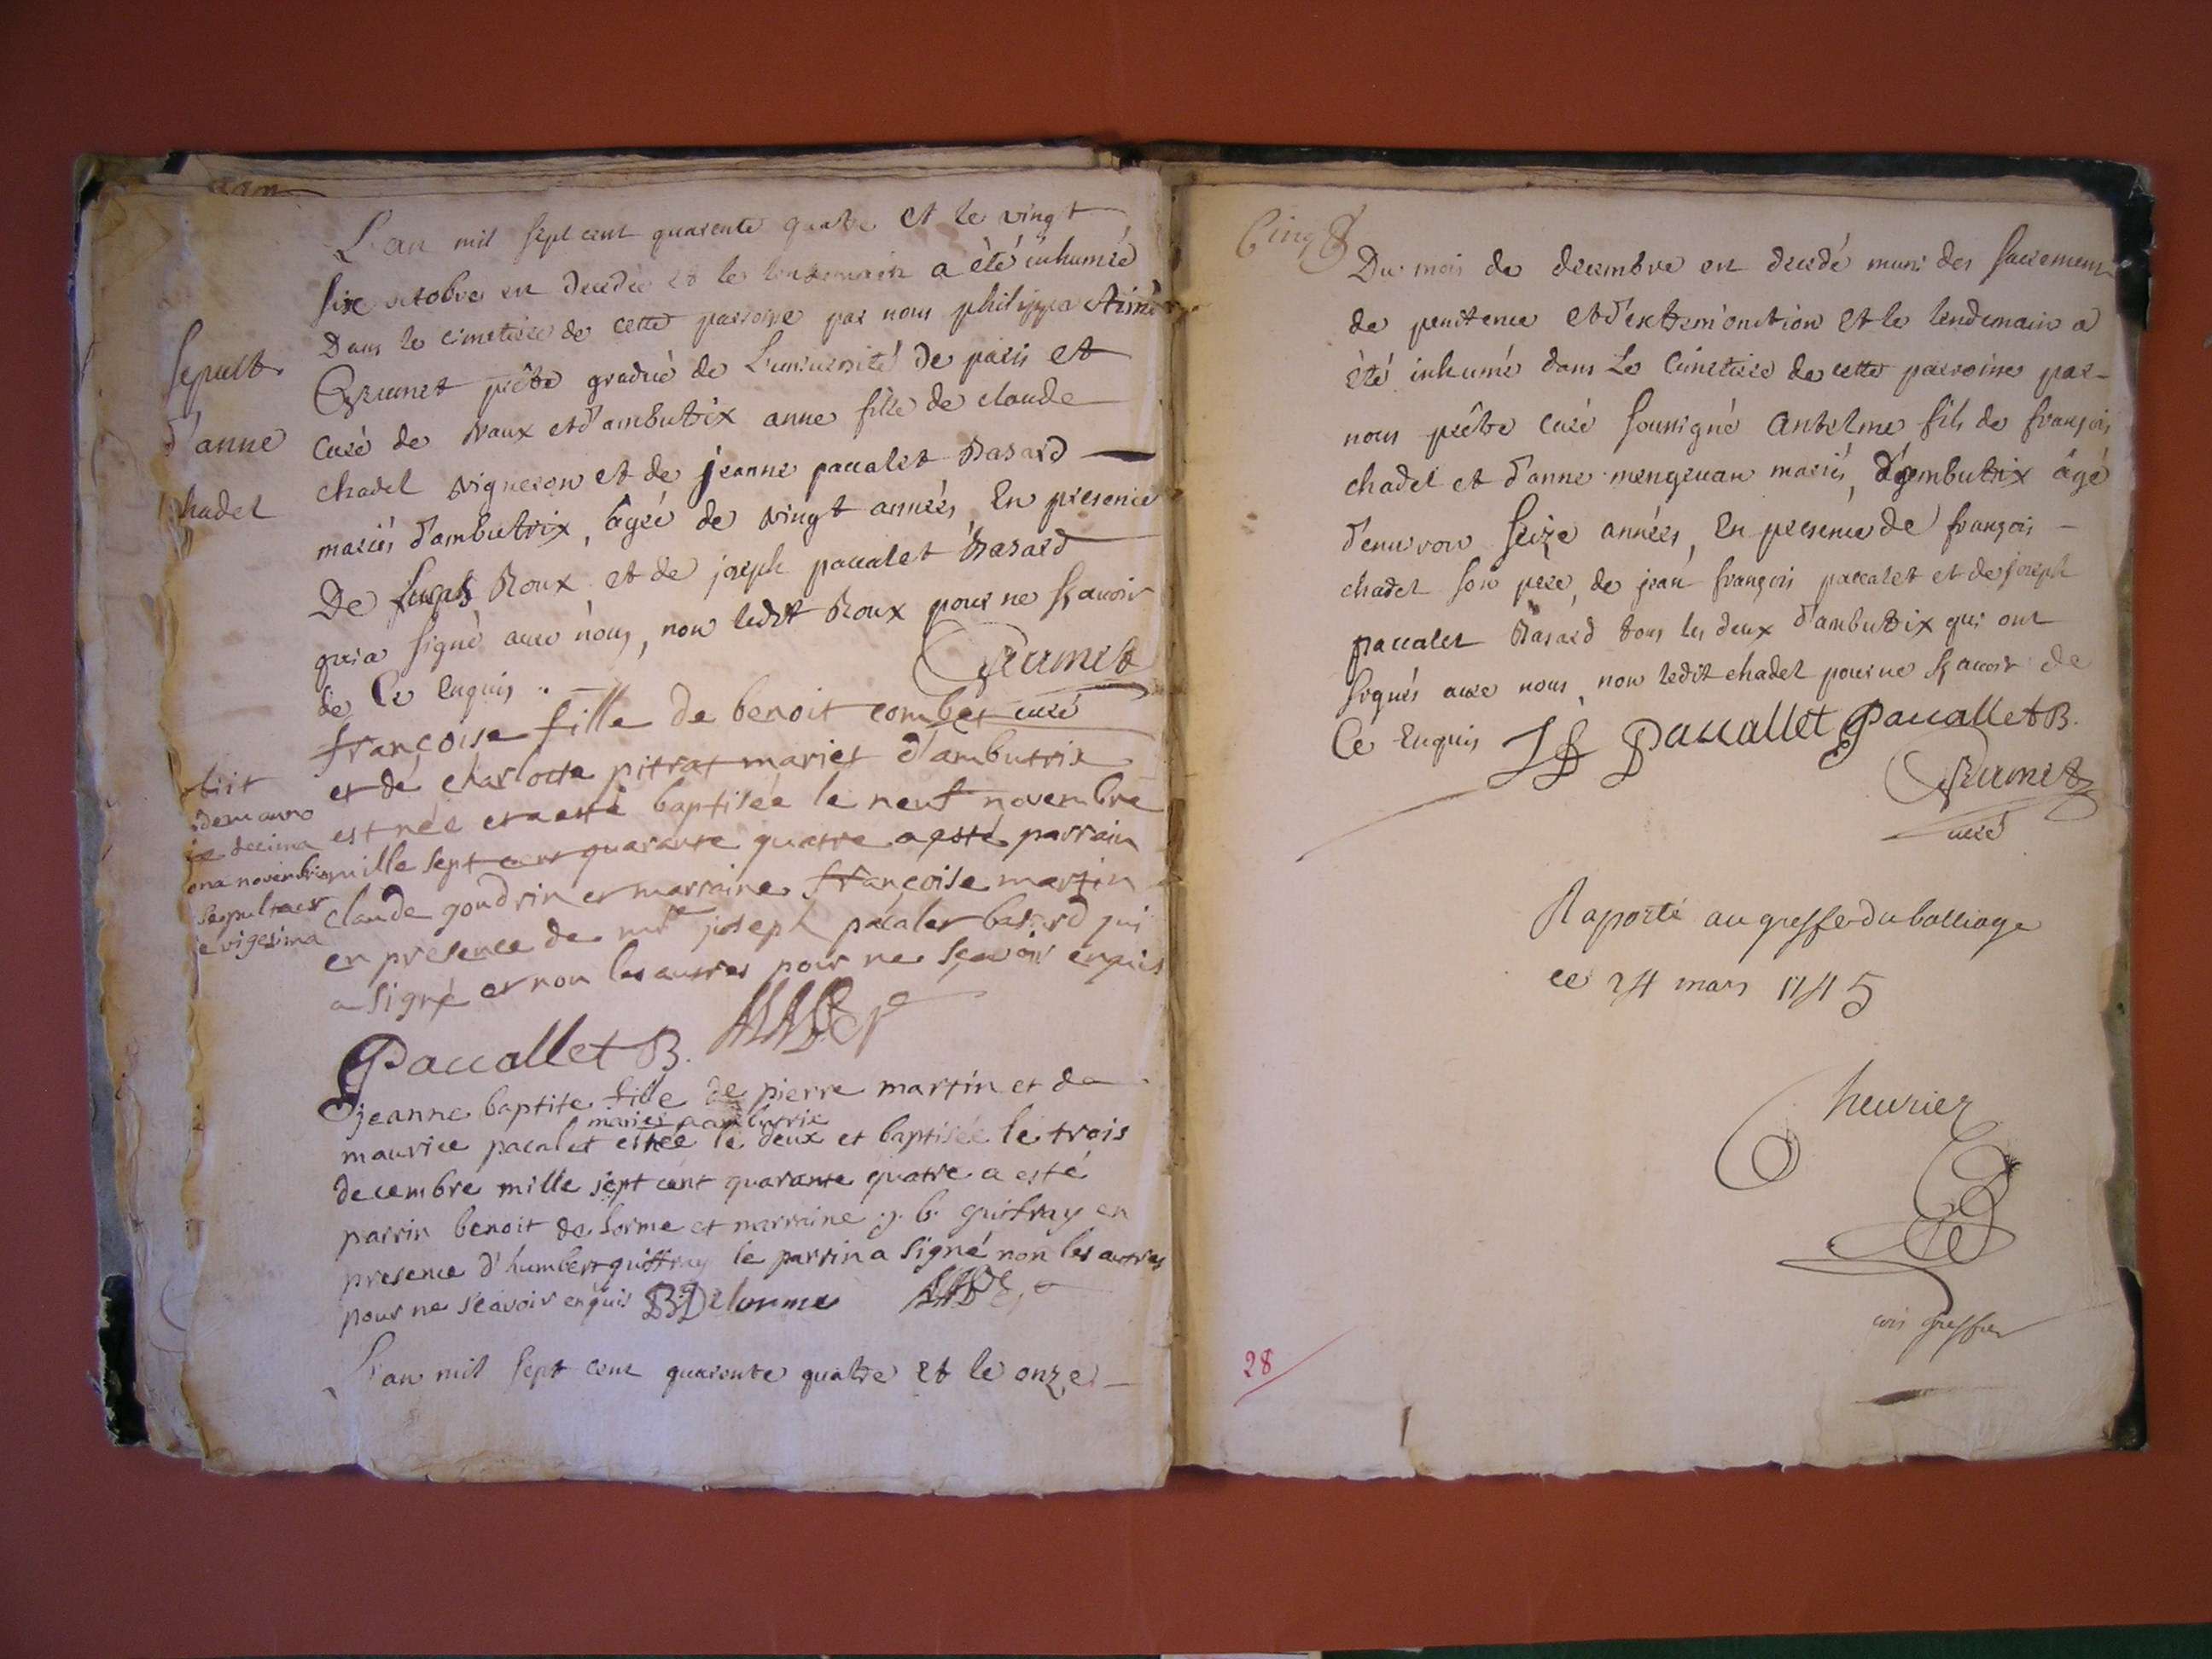 L'an mil sept cent quarente quatre et le vingt
six octobre est decedée et le lendemain a été inhumée
Dans le cimetiere de cette paroisse par nous philippe Aimé
Brunet prêtre gradué de Luniversité de paris et
curé de vaux et d'ambutrix anne fille de claude
chadel vigneron et de jeanne paccalet Basard
mariés d'ambutrix, âgée de vingt années, En presence
De Roux et de joseph paccalet Basard
qui a signé avec nous, non ledit Roux pour ne sçavoir
de Ce Enquis.
Brunet
curé
sepult.
d'anne
chadel
françoise fille de benoit combet
et de charlotte pitrat mariés d'ambutrix
est née et a esté baptisée le neuf novembre
mille sept cent quarante quatre a esté parrain
claude goudrin et marraine françoise martin
en presence de mre joseph pacalet basard qui
a signé et non les autres pour ne sçavoir enquis
obiit
idem anno
decima
nona novembris
sepulta est
vigesima
Paccallet B.
jeanne baptite fille de pierre martin et de
mariés d'ambutrix
maurice pacalet est née le deux et baptisée le trois
decembre mille sept cent quarante quatre a esté
parrin benoit de lorme et marraine j. b. guiffray en
presence d'humbert guiffray le parrin a signé non les autres
pour ne sçavoir enquis B. Delorme
L'an mil sept cent quarente quatre et le onze
Cinq 8
Du mois de decembre est decedé muni des sacremens
de penitence et d'extremonction et le lendemain a
été inhumé dans Le Cimetiere de cette paroisse par
nous prêtre curé soussigné Antelme fils de françois
chadel et d'anne mengeuan mariés, d'ambutrix âgé
d'environ seize années, En presence de françois
chadel son pere, de jean françois paccalet et de joseph
paccalet Basard tous les deux d'ambutrix qui ont
signés avec nous, non ledit chadel pour ne sçavoir de
Ce Enquis Jf Paccallet Paccallet B.
Brunet
curé
Raporté au greffe du balliage
ce 24 mars 1745
Cheurier
cois greffier
28